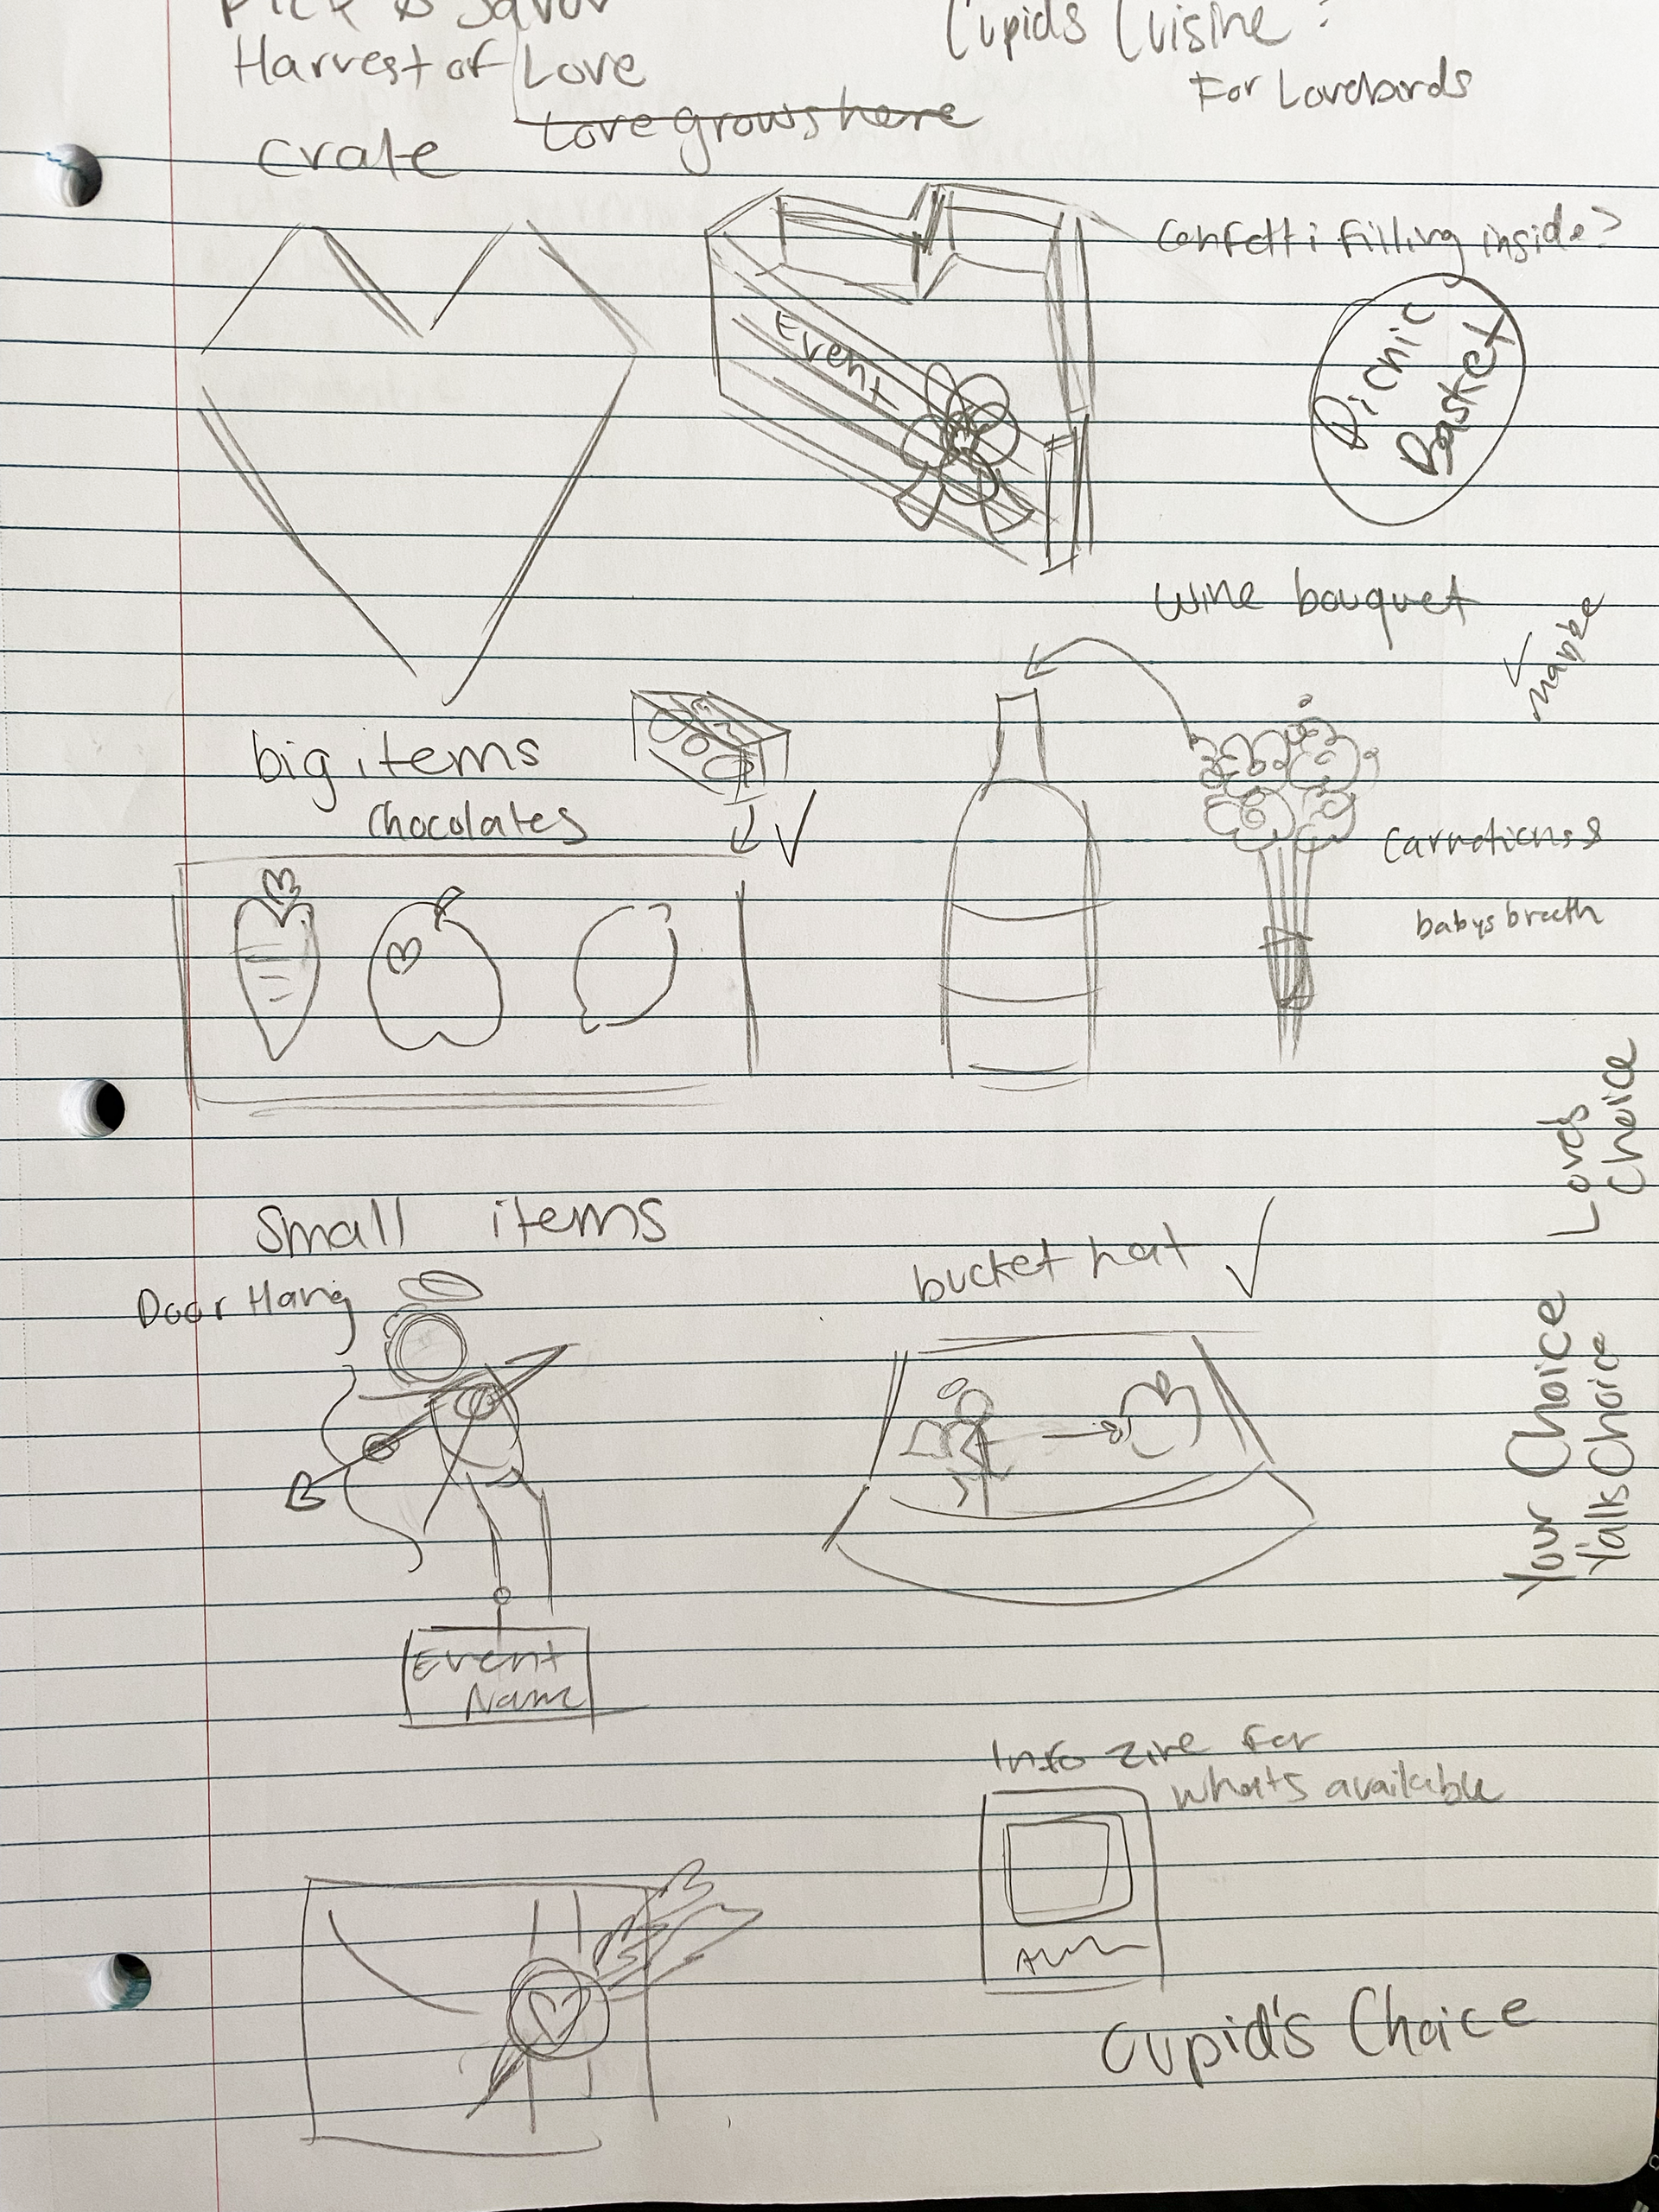 Pick & Savor
Cupids Cuisine?
Harvest of Love
For Lovebirds
Love grows here
crate
Confetti filling inside?
Event
Picnic
Basket
wine bouquet
maybe
big items
Chocolates
Carnations &
babys breath
Loves
Choice
Small items
bucket hat
Door Hang
Your Choice
Y'alls Choice
Event
Name
Info zine for
whats available
Cupid's Choice